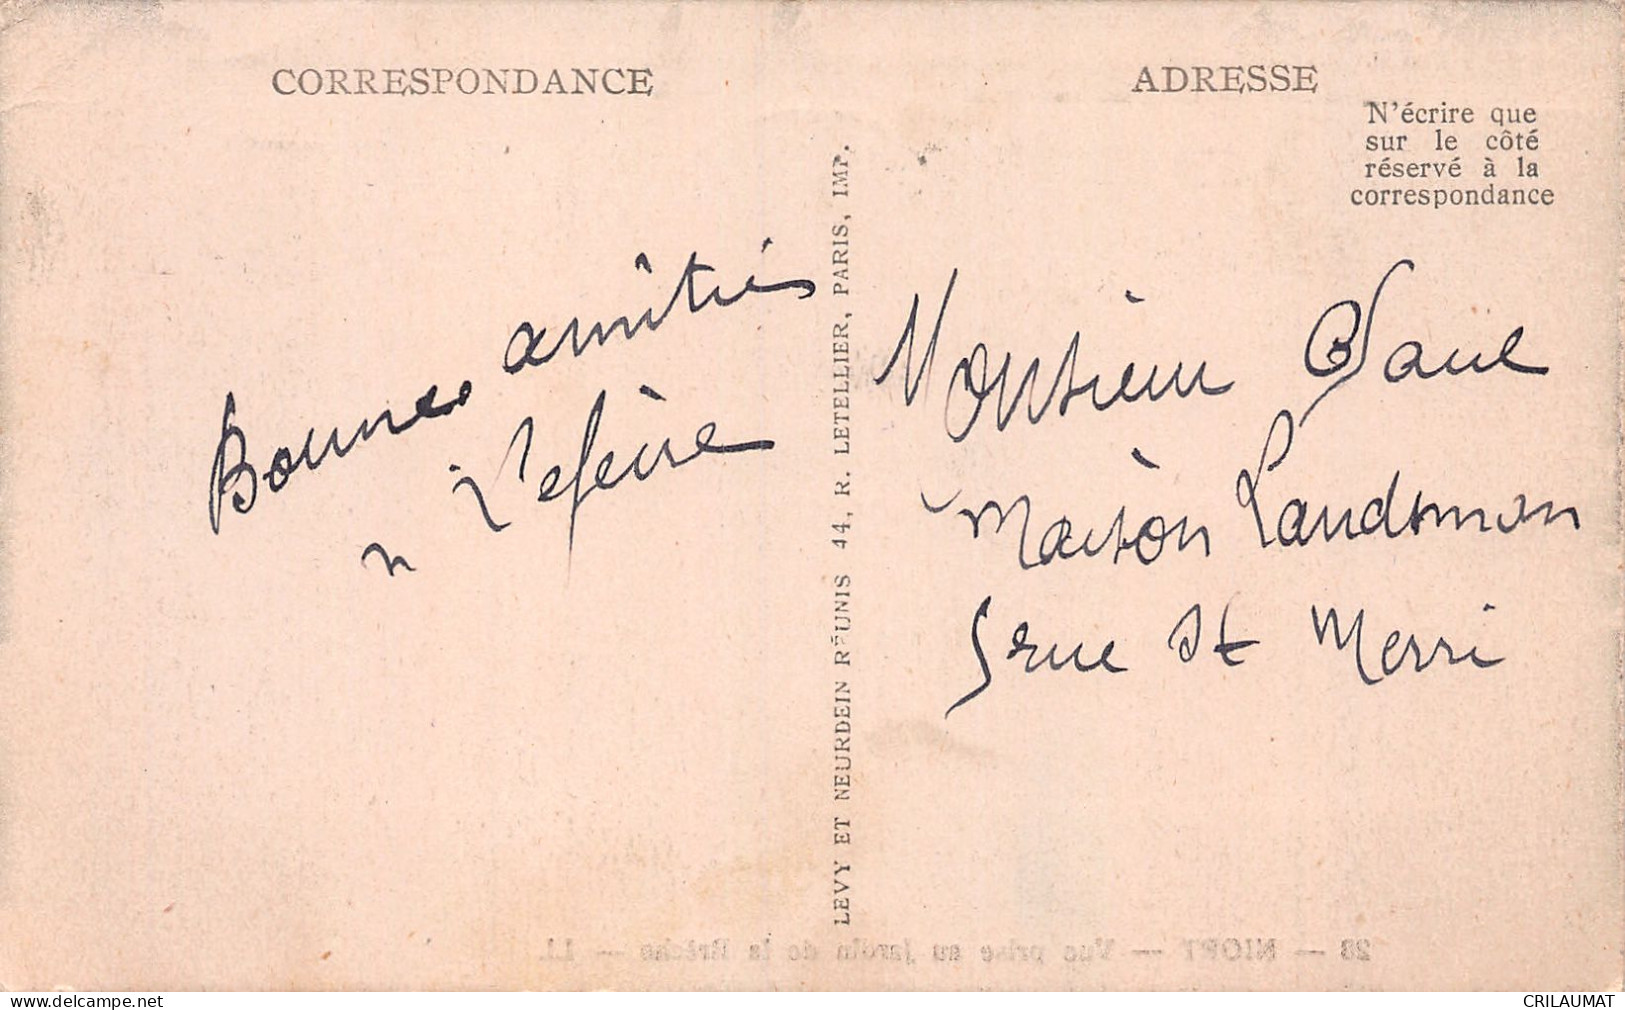 CORRESPONDANCE
Bonnes amitiés
Lefèvre
LEVY ET NEURDEIN RÉUNIS 44, R. LETELLIER, PARIS, IMP.
ADRESSE
N'écrire que
sur le côté
réservé à la
correspondance
Monsieur Paul
Maison Landsman
5 rue St Merri
28 — NIORT — Vue prise au jardin de la Brèche — LL.
CRILAUMAT